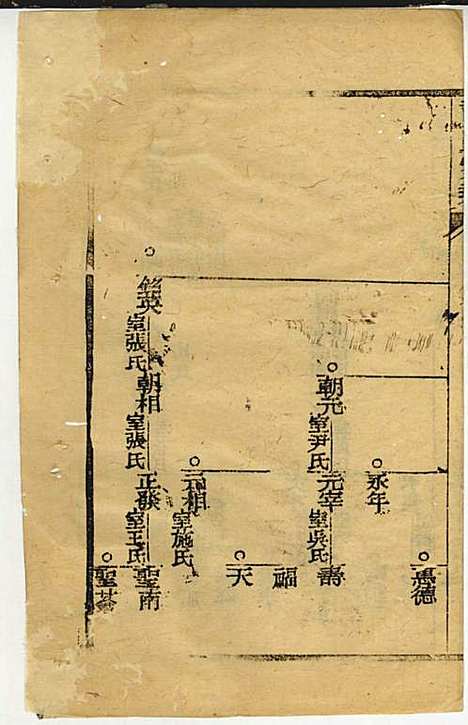 惠德
永年
朝元
室尹氏
元宰
室吳氏
壽
福
天
元相
室施氏
銘英
室張氏
朝相
室張氏
正發
室王氏
聖南
聖